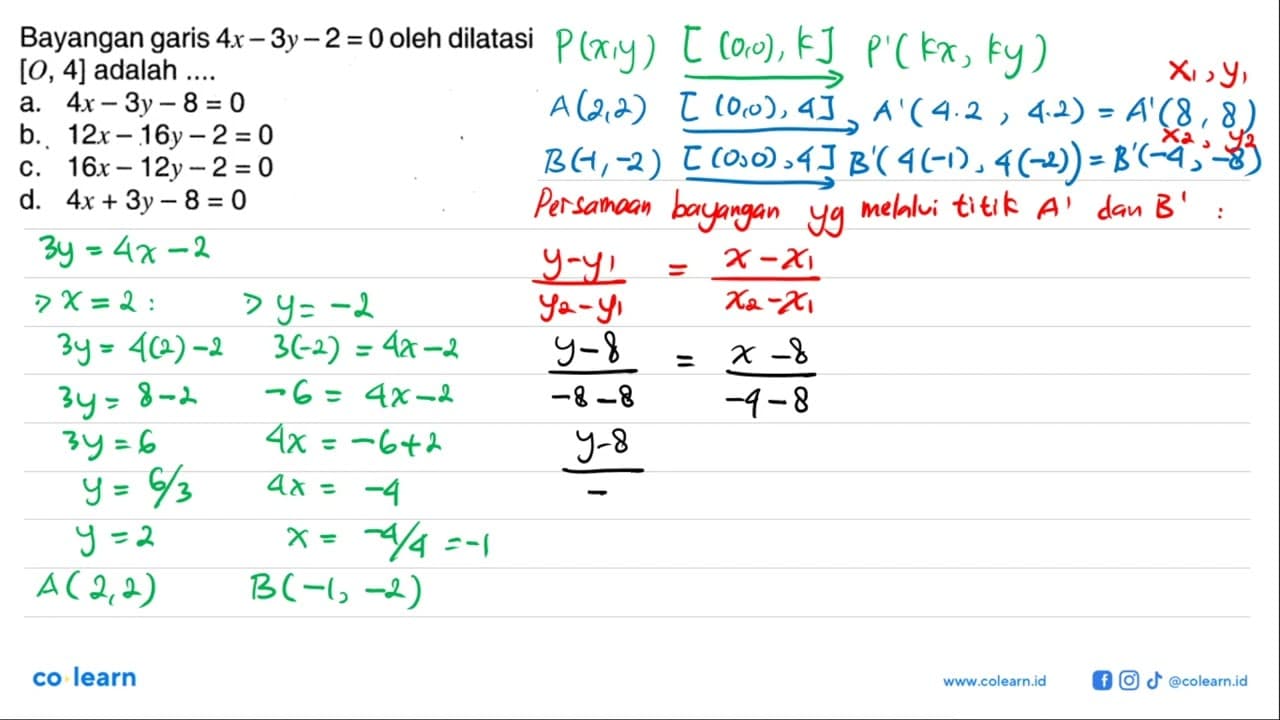 Bayangan garis 4x – 3y – 2 = 0 oleh dilatasi
[O, 4] adalah ....
a. 4x – 3y – 8 = 0
b. 12x – 16y – 2 = 0
c. 16x – 12y – 2 = 0
d. 4x + 3y – 8 = 0
3y = 4x – 2
> x = 2 :
3y = 4(2) – 2
3y = 8 – 2
3y = 6
y = 6/3
y = 2
A(2,2)
> y = –2
3(–2) = 4x – 2
–6 = 4x – 2
4x = –6+2
4x = –4
x = –4/4 = –1
B(–1, –2)
P(x,y) [(0,0), k] P'(kx, ky)
x₁, y₁
A(2,2) [(0,0), 4] A'(4.2 , 4.2) = A'(8, 8)
x₂, y₂
B(–1, –2) [(0,0), 4] B'(4(–1), 4(–2)) = B'(–4, –8)
Persamaan bayangan yg melalui titik A' dan B' :
y – y₁ = x – x₁
y₂ – y₁ x₂ – x₁
y – 8 = x – 8
–8 – 8 –4 – 8
y – 8
–
co learn
www.colearn.id @colearn.id